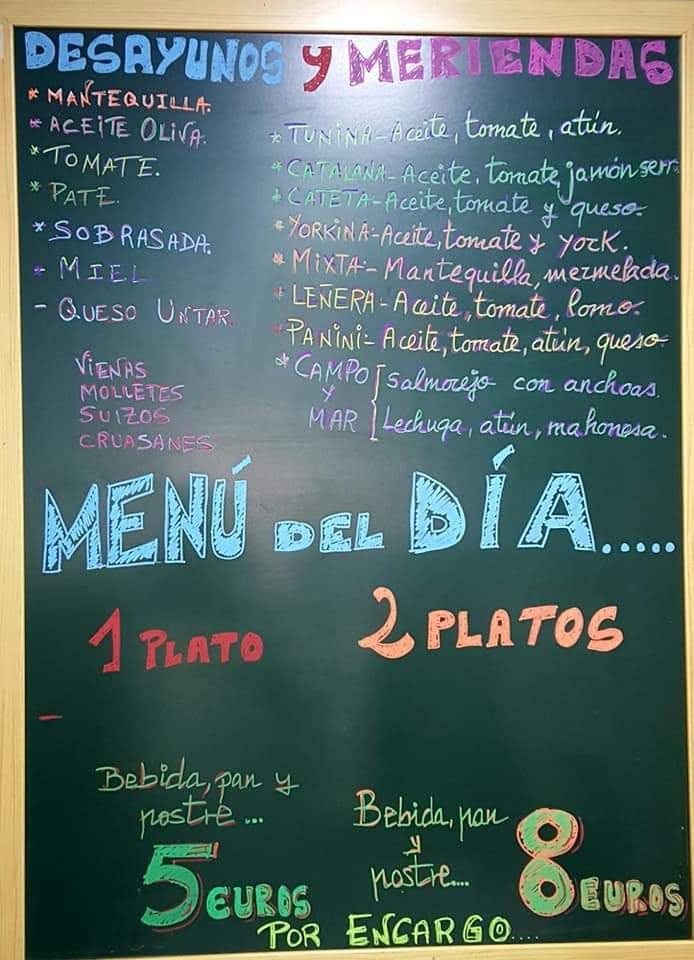 DESAYUNOS Y MERIENDAS
* MANTEQUILLA.
* ACEITE OLIVA.
* TOMATE.
* PATE.
* SOBRASADA.
- MIEL
- QUESO UNTAR.
VIENAS
MOLLETES
SUIZOS
CRUASANES
* TUNINA-Aceite, tomate, atún.
* CATALANA-Aceite, tomate, jamón serr.
* CATETA-Aceite, tomate y queso.
* YORKINA-Aceite, tomate y york.
* MIXTA-Mantequilla, mezmelada.
* LEÑERA-Aceite, tomate, lomo.
* PANINI-Aceite, tomate, atún, queso
* CAMPO Y MAR
Salmorejo con anchoas.
Lechuga, atún, mahonesa.
MENÚ DEL DÍA.....
1 PLATO
-
Bebida, pan y
postre...
5 EUROS
2 PLATOS
Bebida, pan
y
postre...
8 EUROS
POR ENCARGO....